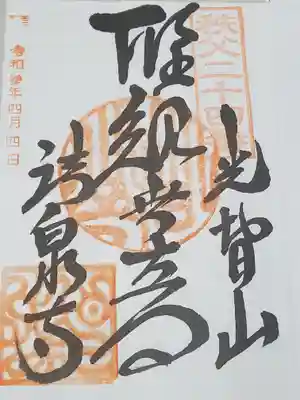 秩父二十四番
光智山
聖観世音
法泉寺
令和年四月四日